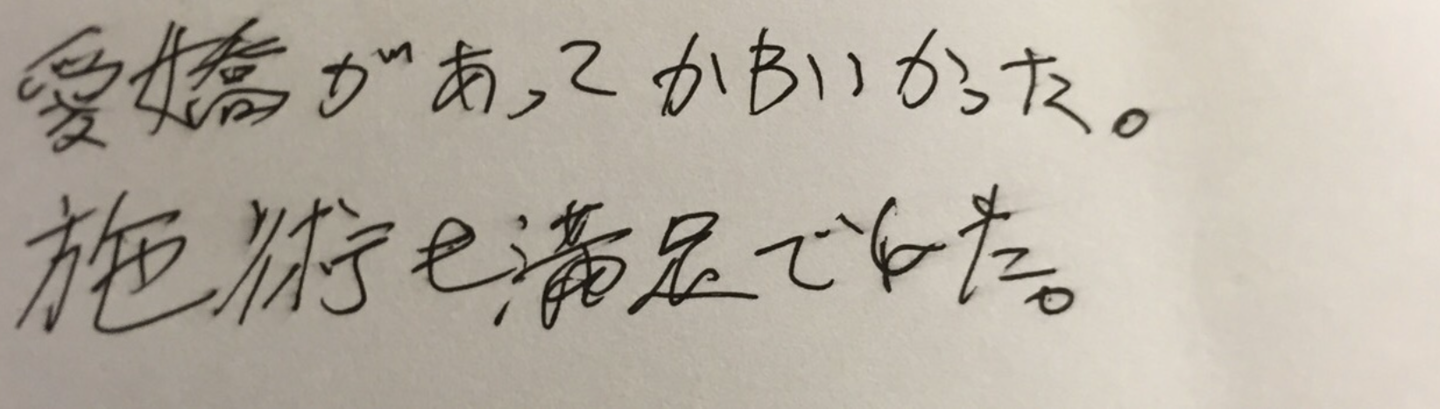 愛嬌があってかわいかった。
施術も満足できた。